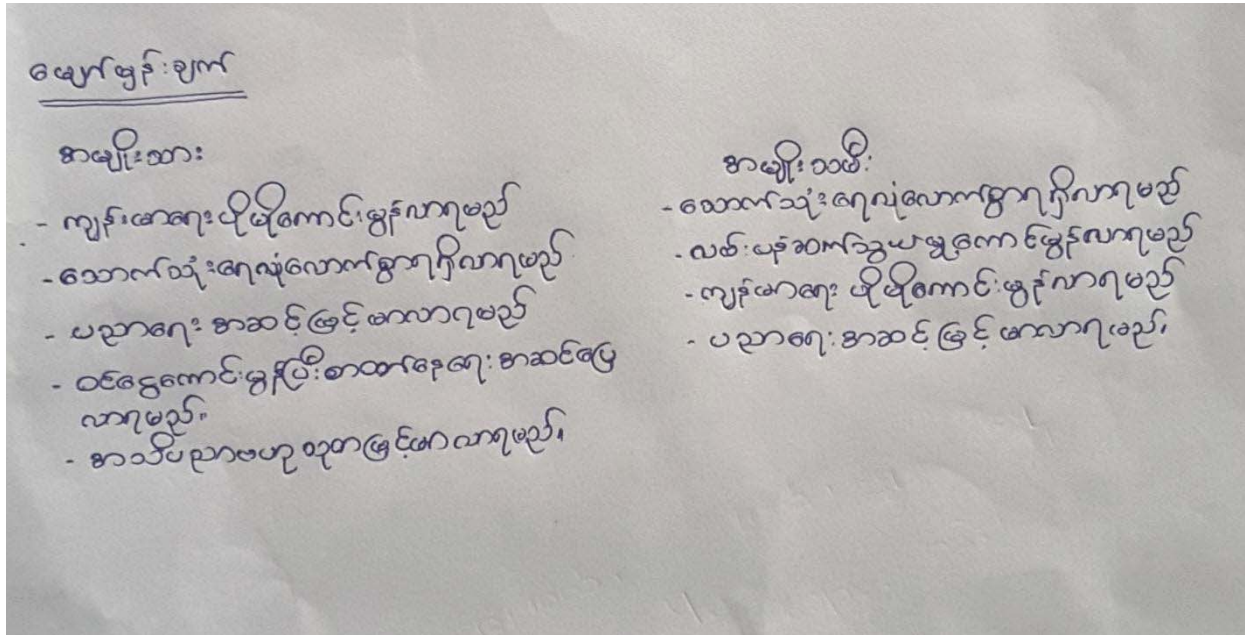 မျှော်မှန်းချက်
အမျိုးသား
- ကျန်းမာရေးပိုမိုကောင်းမွန်လာရမည်
- သောက်သုံးရေလုံလောက်စွာရရှိလာရမည်
- ပညာရေး အဆင့်မြင့်မာလာရမည်
- ဝင်ငွေကောင်းမွန်ပြီးစားဝတ်နေရေး အဆင်ပြေ
လာရမည်။
- အသိပညာဗဟုသုတမြင့်မာလာရမည်။
အမျိုးသမီး
- သောက်သုံးရေလုံလောက်စွာရရှိလာရမည်
- လမ်းပန်းဆက်သွယ်မှုကောင်မွန်လာရမည်
- ကျန်မာရေး ပိုမိုကောင်းမွန်လာရမည်
- ပညာရေးအဆင့်မြင့်မာလာရမည်။